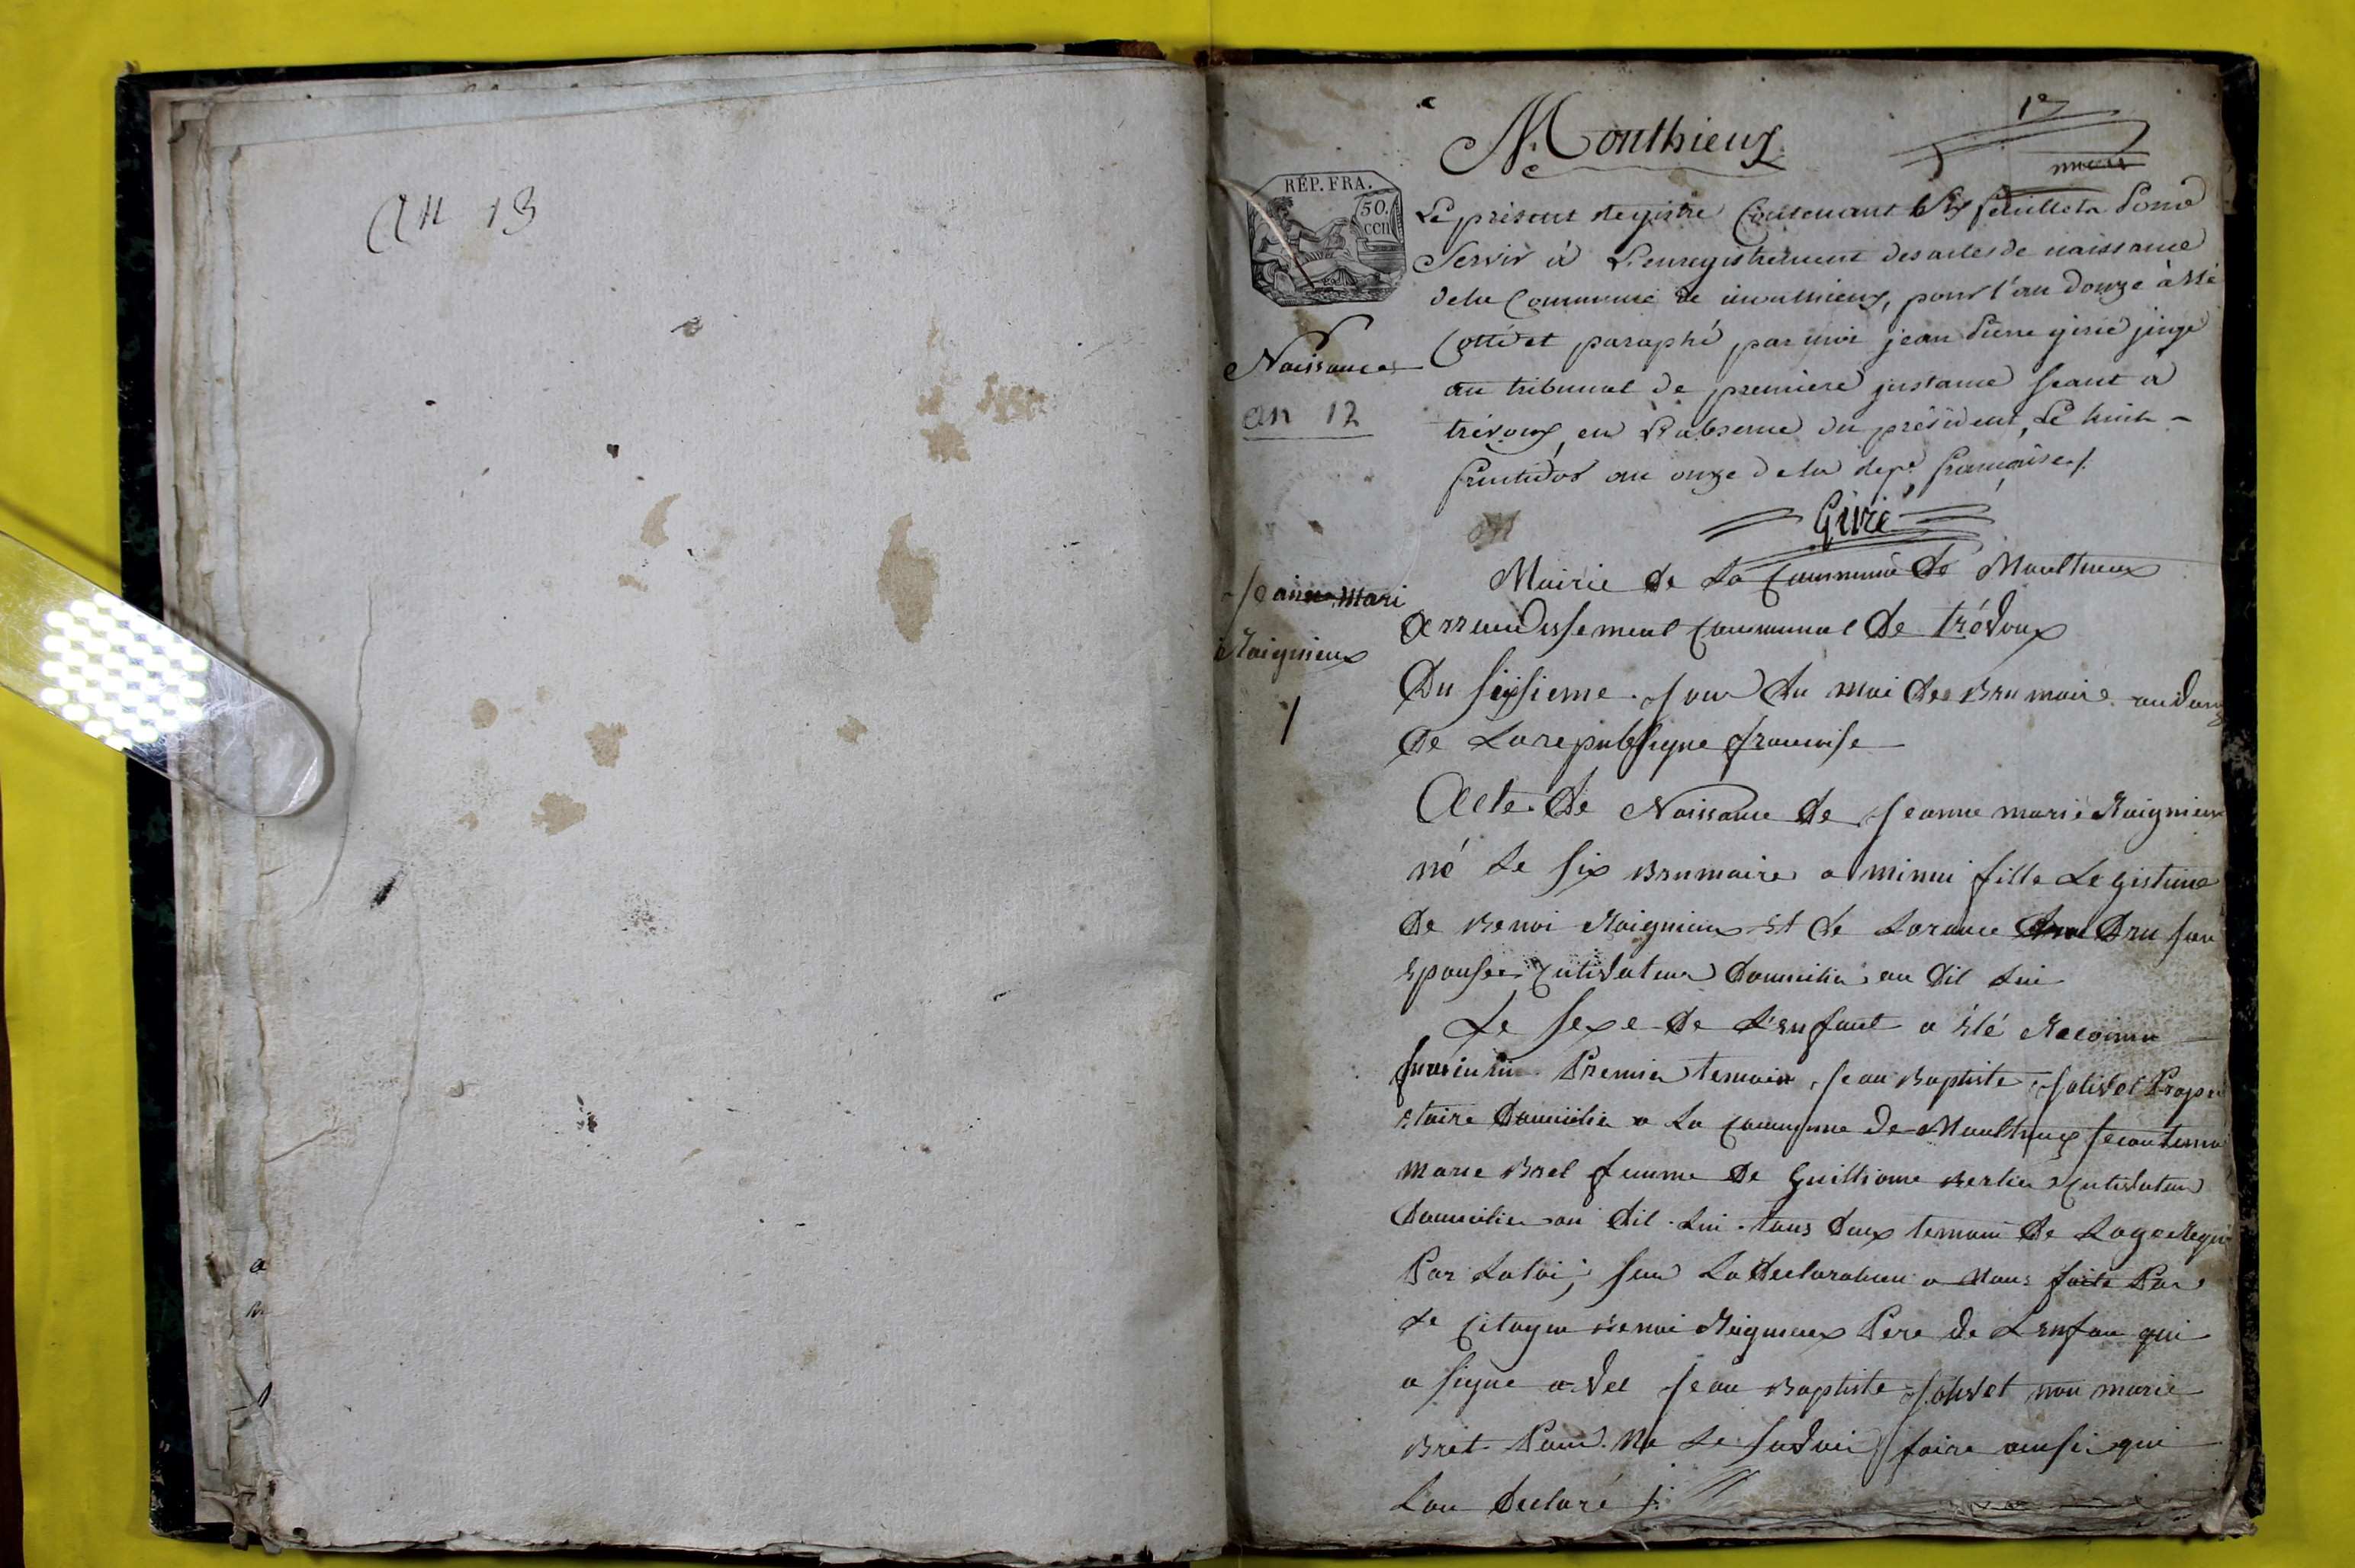 an 13
Monthieux
1er
RÉP. FRA.
50.
cen
Le présent registre Contenant six feuillets Pour
Servir à L'enregistrement des actes de naissance
de la Commune de monthieux, pour l'an douze à été
Cotté et paraphé par moi jean Pierre givré juge
au tribunal de premiere instance séant à
trévoux, en L'absence du président, Le huit
fructidor an onze de la rep.e française ./.
Naissances
an 12
Givré
Mairie de La Commune de Monltieux
arrondissement Communal de trévoux
Jeanne mari
Raignieux
1
Du sixsieme Jour du moi de Brumaire an douz
de La republique francoise
Acte de Naissance de Jeanne marie Raignieux
né Le six Brumaire a minui fille Legistime
de Benoi Raignieux Et de Lorance Dru son
Epouse Cutivateur domicilie au dit Lui
Le sexe de L'enfant a Eté Reconnu
feminin Premier temoin Jean Baptiste Jolivet Propri
Etaire domicilie a La commune de Monltieux second temoi
marie Bret femme de Guilliome Berlie Cutivateur
domicilie au dit Lui tous deux temoin de Lage Requi
Par La loi, sur La declaration a Nous faite Par
Le Citoyen Benoi Raignieux Pere de Lenfan qui
a signe avec Jean Baptiste Jolivet non marie
Bret Pour Ne Le savoir faire ainsi qui
Lon declaré ./.